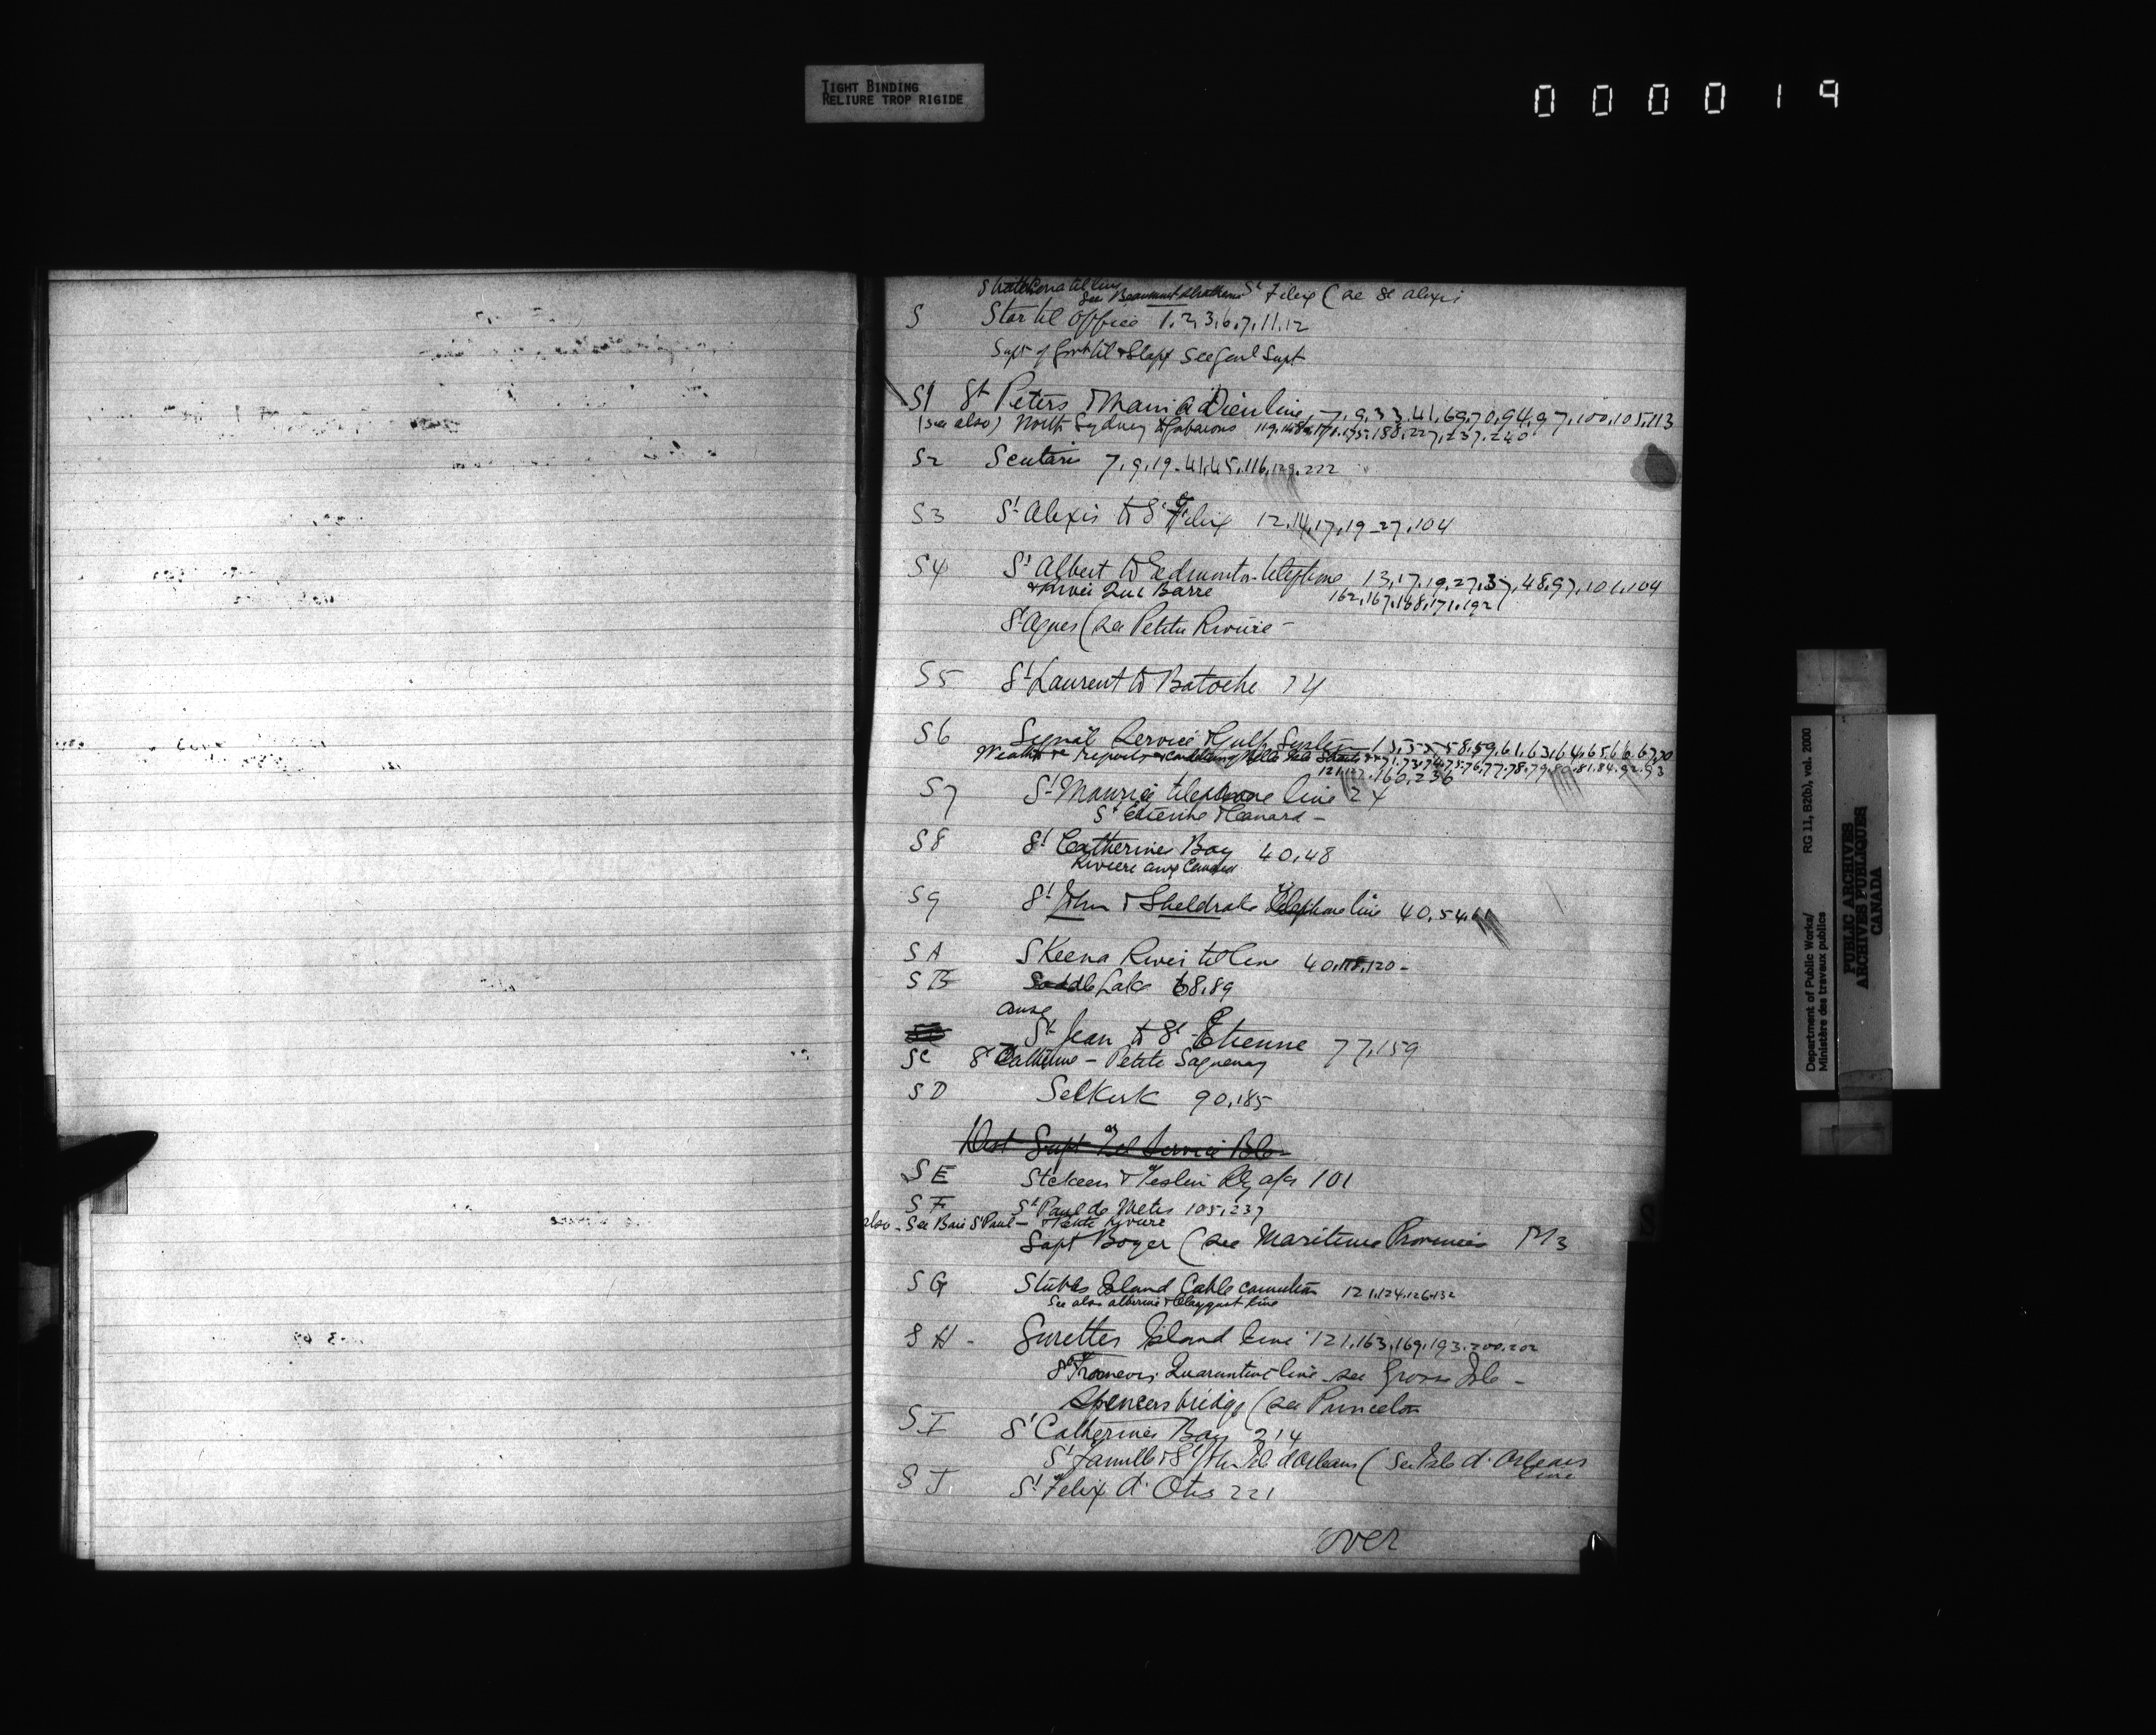 TIGHT BINDING
RELIURE TROP RIGIDE
000019
Strathcona tel line
See Beaumont Strathcona St Felix (see St Alexis
S Star tel office 1,2,3,6,7,11,12
Supt of Govt tel & Staff See Genl Supt
S1 St Peters & Main à Dieu line, 7,9,33,41,69,70,94,97,100,105,113
(see also) North Sydney & Gabarous 119,148,171,175,188,227,237,240
S2 Scutari 7,9,19-41,45,116,129,222
S3 St Alexis to St Felix 12,14,17,19-27,104
S4 St Albert to Edmonton telephone 13,17,19,27,37,48,97,101,104
& Rivière Qui Barre 162,167,168,171,192
St Agnes (see Petite Rivière -
S5 St Laurent to Batoche 14
S6 Signal Service Gulf System 13,55,58,59,61,63,64,65,66,67,70
Weather reports & Belle Isle Straits 71,73,74,75,76,77,78,79,80,81,84,92,93
121,127,160,236
S7 St Maurice telephone line 24
St Etienne & Canard -
S8 St Catherines Bay 40,48
Rivière aux Canards
S9 St John & Sheldrake Telephone line 40,54,61
SA Skeena River tel line 40,118,120-
SB Saddle Lake 68,89
Anse
St Jean to St Etienne 77,159
SC St Catherine - Petite Saguenay
SD Selkirk 90,185
Dist Supt Tel Service B.C.
SE Stikeen & Teslin Ry a/c 101
SF St Paul de Metis 105,237
also - See Baie St Paul - Petite Rivière
Supt Boyer (see Maritime Provinces M3
SG Stubbs Island Cable connection 121,124,126,132
See also Alberni & Clayoquot line
SH - Surettes Island line 121,163,169,193,200,202
St Francois Quarantine line - see Grosse Isle -
Spencers bridge (see Princeton
SI St Catherines Bay 214
St Famille & St John Isle d'Orleans (See Isle d'Orleans
line
SJ St Felix d'Otis 221
over
S
Department of Public Works/ RG 11, B2(b), vol. 2000
Ministère des travaux publics
PUBLIC ARCHIVES
ARCHIVES PUBLIQUES
CANADA